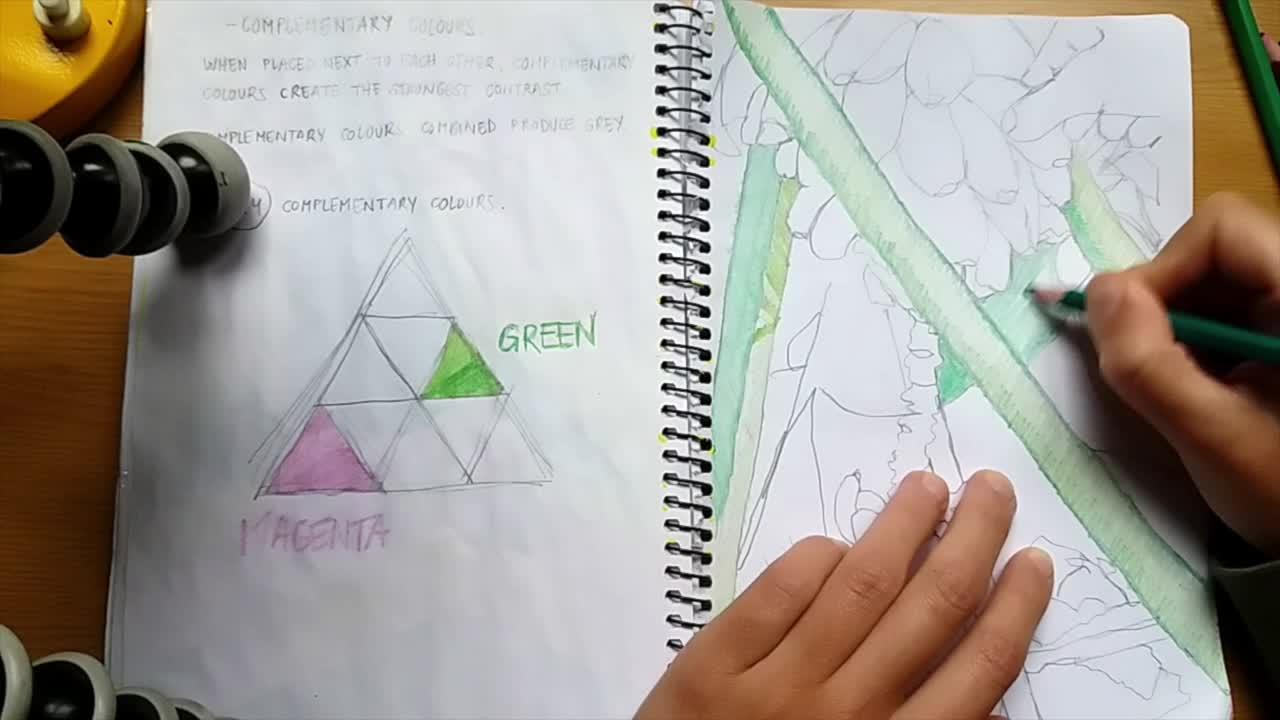 - COMPLEMENTARY COLOURS.
WHEN PLACED NEXT TO EACH OTHER, COMPLEMENTARY
COLOURS CREATE THE STRONGEST CONTRAST
COMPLEMENTARY COLOURS COMBINED PRODUCE GREY.
COMPLEMENTARY COLOURS.
GREEN
MAGENTA